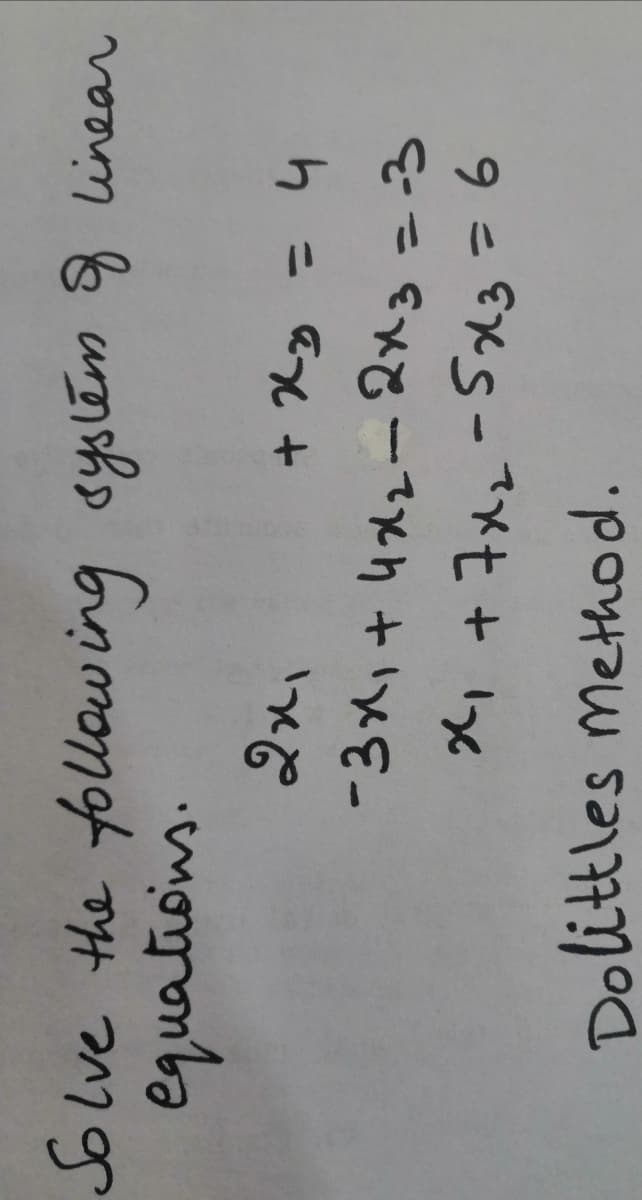 Solve the following system of linear
equations.
2x₁ + x₃ = 4
-3x₁ + 4x₂ - 2x₃ = -3
x₁ + 7x₂ - 5x₃ = 6
Dolittles Method.